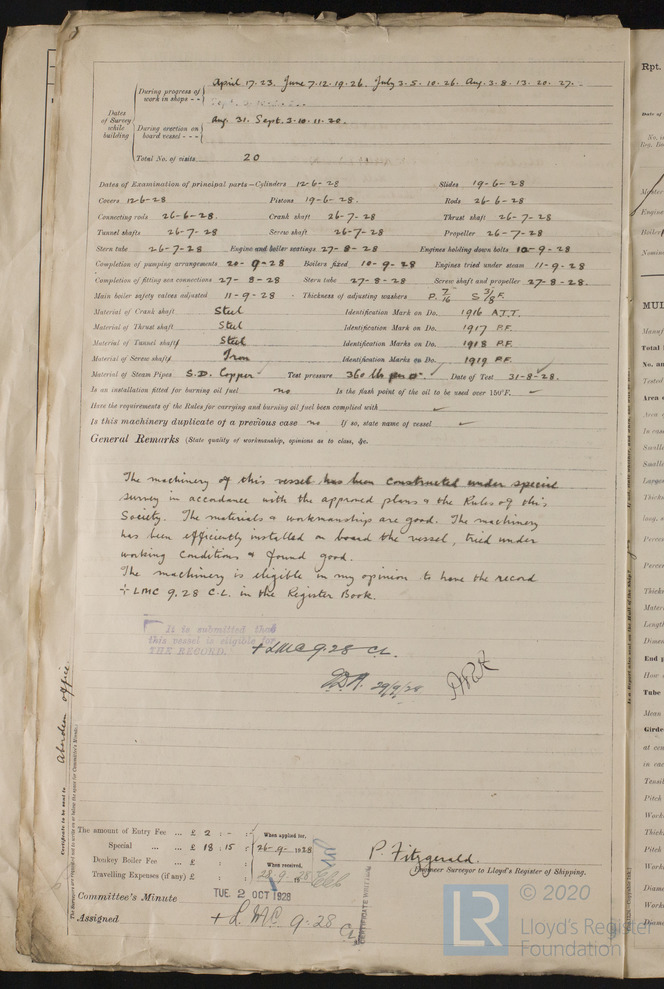 April 17. 23. June 7. 12. 19. 26. July 3. 5. 10. 26. Aug. 3. 8. 13. 20. 27.
Dates of Survey while building
During progress of work in shops - -
During erection on board vessel - - -
Aug. 31. Sept. 3. 10. 11. 20.
Total No. of visits 20
Dates of Examination of principal parts—Cylinders 12-6-28 Slides 19-6-28
Covers 12-6-28 Pistons 19-6-28. Rods 26-6-28
Connecting rods 26-6-28. Crank shaft 26-7-28 Thrust shaft 26-7-28
Tunnel shafts 26-7-28 Screw shaft 26-7-28 Propeller 26-7-28
Stern tube 26-7-28 Engine and boiler seatings 27-8-28 Engines holding down bolts 10-9-28
Completion of pumping arrangements 20-9-28 Boilers fixed 10-9-28 Engines tried under steam 11-9-28
Completion of fitting sea connections 27-8-28 Stern tube 27-8-28 Screw shaft and propeller 27-8-28.
Main boiler safety valves adjusted 11-9-28 Thickness of adjusting washers P. 7/16 S 3/8 F.
Material of Crank shaft Steel Identification Mark on Do. 1916 A.J.T.
Material of Thrust shaft Steel Identification Mark on Do. 1917 P.F.
Material of Tunnel shafts Steel Identification Marks on Do. 1918 P.F.
Material of Screw shafts Iron Identification Marks on Do. 1919 P.F.
Material of Steam Pipes S.D. Copper Test pressure 360 lb per □" Date of Test 31-8-28.
Is an installation fitted for burning oil fuel no Is the flash point of the oil to be used over 150°F.
Have the requirements of the Rules for carrying and burning oil fuel been complied with
Is this machinery duplicate of a previous case no If so, state name of vessel
General Remarks (State quality of workmanship, opinions as to class, &c.
The machinery of this vessel has been constructed under special
survey in accordance with the approved plans & the Rules of this
Society. The materials & workmanships are good. The machinery
has been efficiently installed on board the vessel, tried under
working conditions & found good.
The machinery is eligible in my opinion to have the record
+ LMC 9.28 C.L. in the Register Book.
It is submitted that
this vessel is eligible for
THE RECORD. + LMC 9.28 CL.
29/9/28
Certificate to be sent to Aberdeen office.
The amount of Entry Fee ... £ 2 : - : When applied for,
Special ... ... £ 18 : 15 : 26-9-1928
Donkey Boiler Fee ... £ : : When received,
Travelling Expenses (if any) £ : : 28.9.28
P. Fitzgerald.
Engineer Surveyor to Lloyd's Register of Shipping.
Committee's Minute TUE 2 OCT 1928
Assigned + L.M.C. 9.28 CL
CERTIFICATE WRITTEN
© 2020
LR
Lloyd's Register
Foundation
Rpt.
MUL